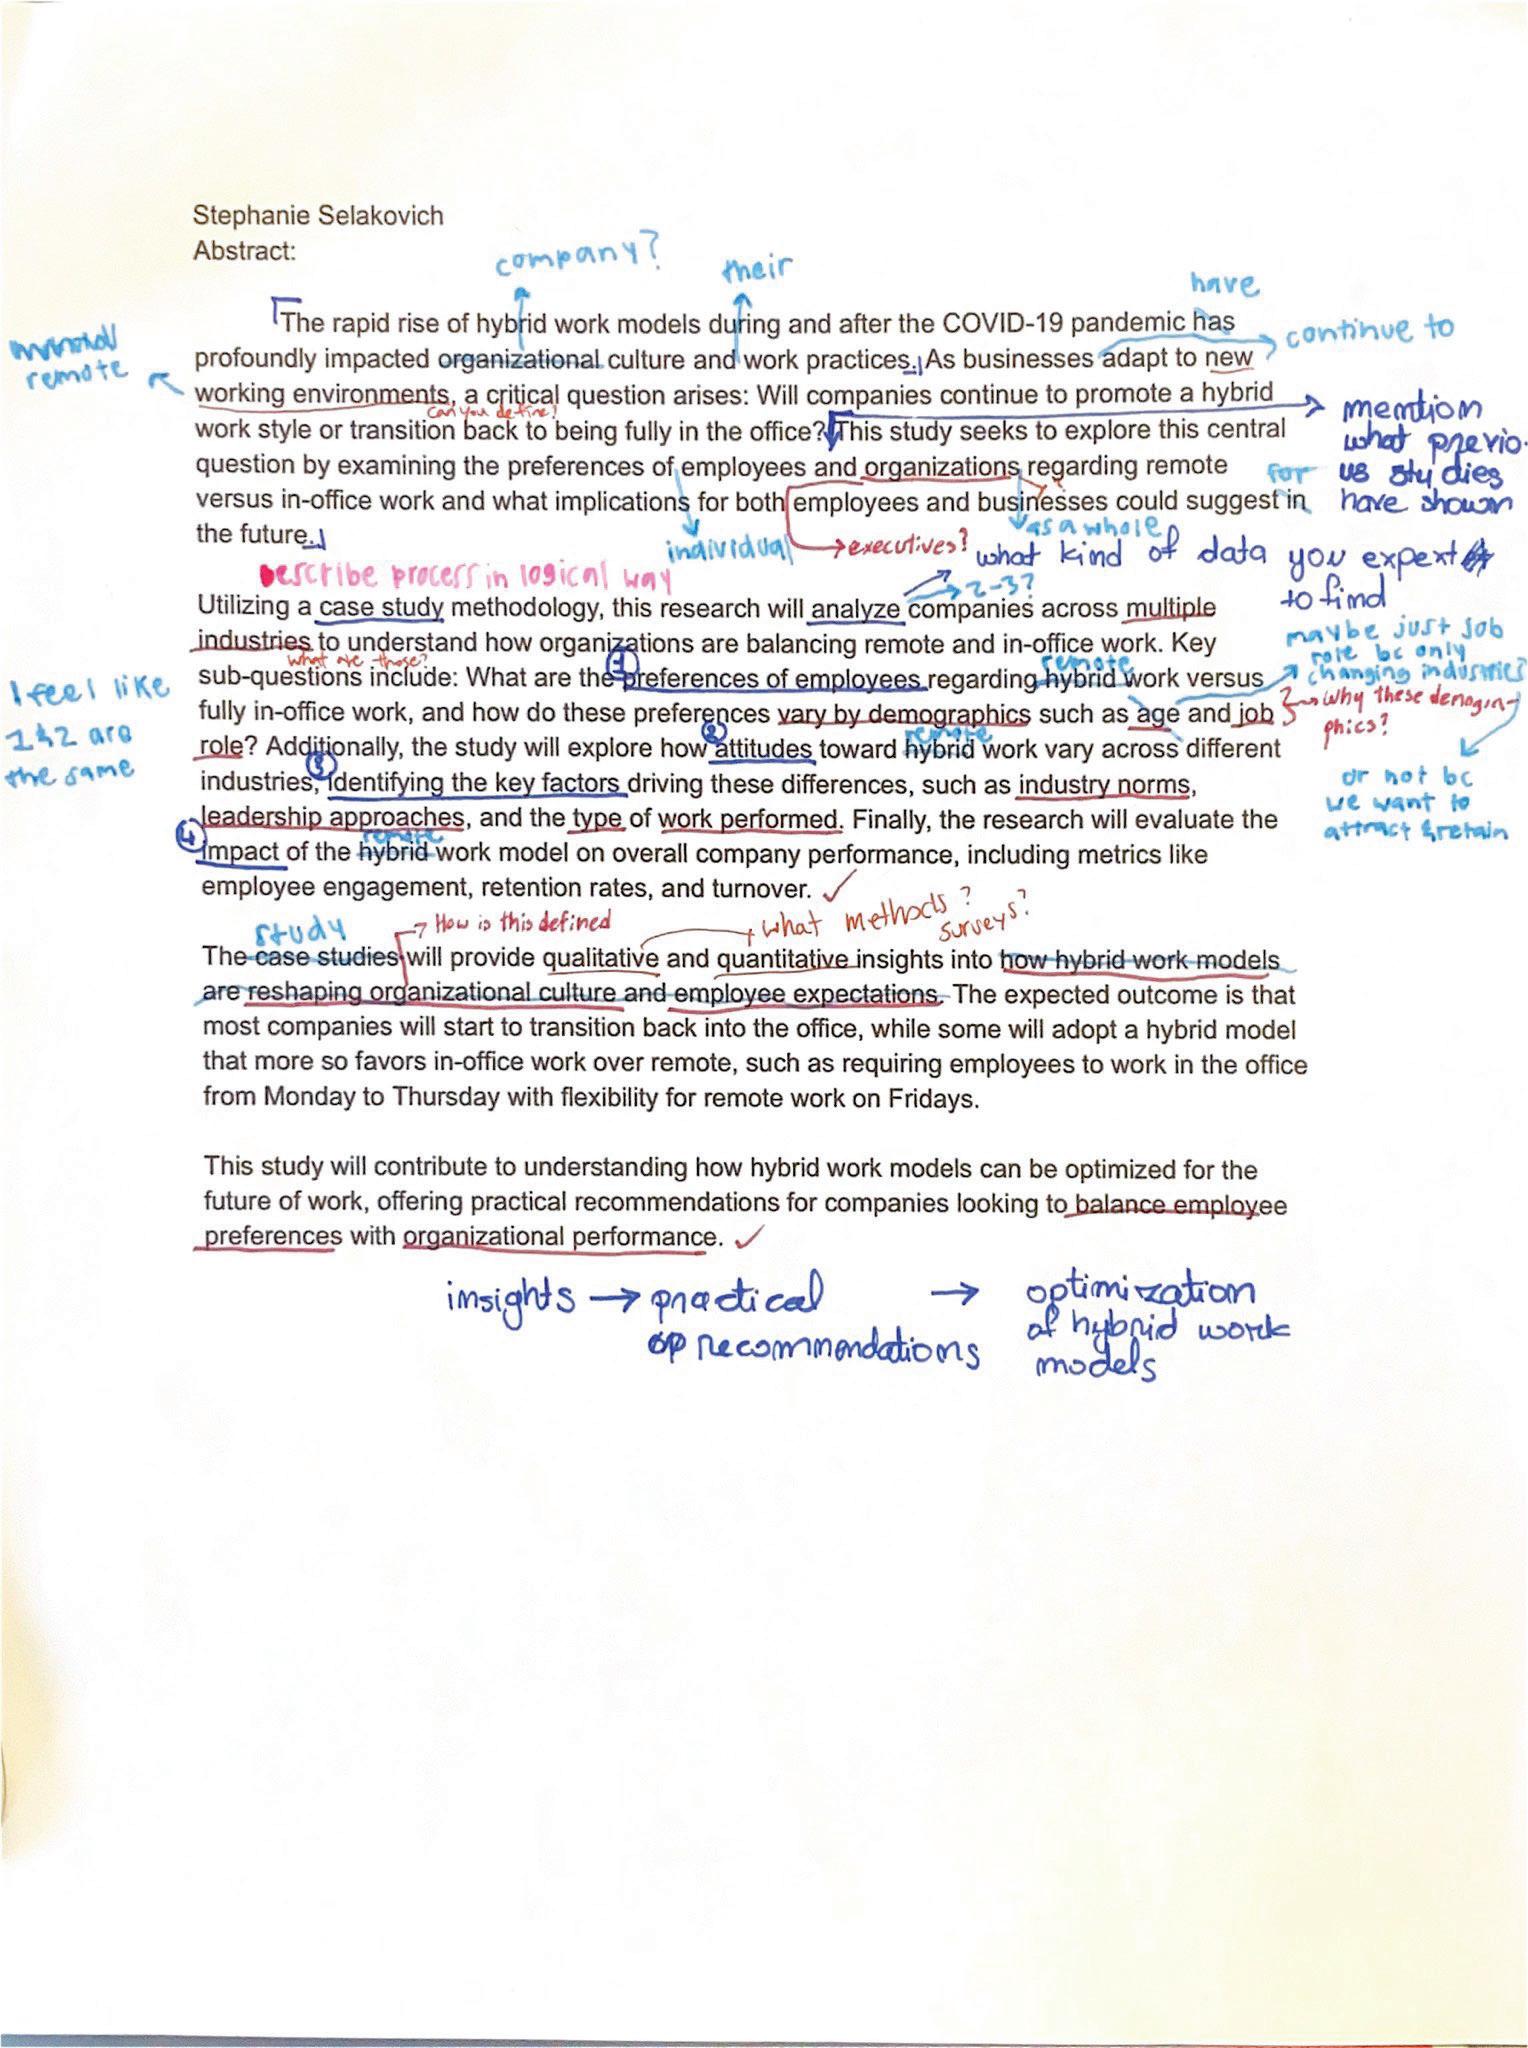 Stephanie Selakovich
Abstract:
company?
their
have
The rapid rise of hybrid work models during and after the COVID-19 pandemic has
continue to
remote
profoundly impacted organizational culture and work practices. As businesses adapt to new
working environments, a critical question arises: Will companies continue to promote a hybrid
can you define?
work style or transition back to being fully in the office? This study seeks to explore this central
mention
what previo-
us studies
have shown
question by examining the preferences of employees and organizations regarding remote
for
versus in-office work and what implications for both employees and businesses could suggest in
the future.
individual
executives?
as a whole
what kind of data you expext
to find
Describe process in logical way
2-3?
Utilizing a case study methodology, this research will analyze companies across multiple
industries to understand how organizations are balancing remote and in-office work. Key
what are those?
1
remote
maybe just job
role bc only
changing industries?
sub-questions include: What are the preferences of employees regarding hybrid work versus
I feel like
1&2 are
the same
fully in-office work, and how do these preferences vary by demographics such as age and job
Why these demogra-
phics?
2
remote
role? Additionally, the study will explore how attitudes toward hybrid work vary across different
3
industries, identifying the key factors driving these differences, such as industry norms,
or not bc
we want to
attract & retain
leadership approaches, and the type of work performed. Finally, the research will evaluate the
4
remote
impact of the hybrid work model on overall company performance, including metrics like
employee engagement, retention rates, and turnover.
study
How is this defined
what methods?
surveys?
The case studies will provide qualitative and quantitative insights into how hybrid work models
are reshaping organizational culture and employee expectations. The expected outcome is that
most companies will start to transition back into the office, while some will adopt a hybrid model
that more so favors in-office work over remote, such as requiring employees to work in the office
from Monday to Thursday with flexibility for remote work on Fridays.
This study will contribute to understanding how hybrid work models can be optimized for the
future of work, offering practical recommendations for companies looking to balance employee
preferences with organizational performance.
insights → practical → optimization
recommendations of hybrid work
models